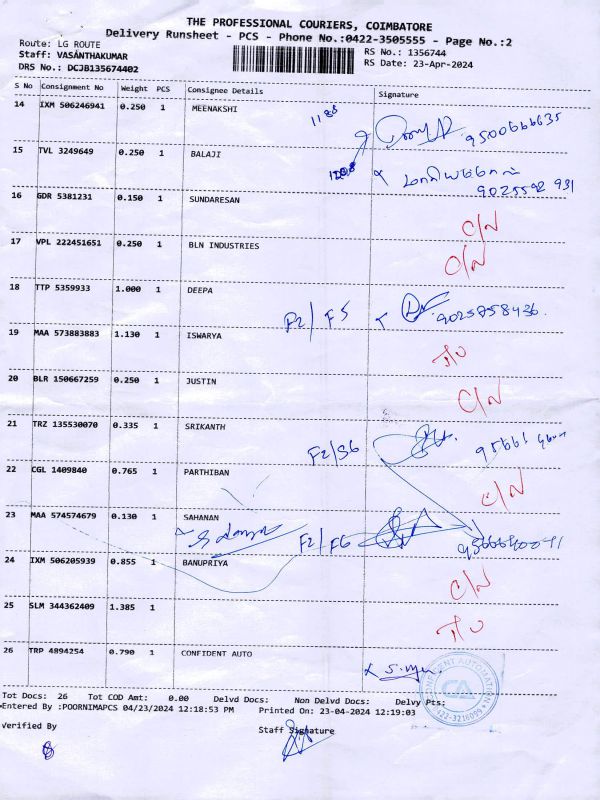 THE PROFESSIONAL COURIERS, COIMBATORE
Delivery Runsheet - PCS - Phone No.:0422-3505555 - Page No.:2
Route: LG ROUTE RS No.: 1356744
Staff: VASANTHAKUMAR RS Date: 23-Apr-2024
DRS No.: DCJB135674402
S No Consignment No Weight PCS Consignee Details Signature
14 IXM 506246941 0.250 1 MEENAKSHI 9500666635
15 TVL 3249649 0.250 1 BALAJI
9025592 931
16 GDR 5381231 0.150 1 SUNDARESAN C/N
17 VPL 222451651 0.250 1 BLN INDUSTRIES C/N
18 TTP 5359933 1.000 1 DEEPA F2/F5 9025758436.
19 MAA 573883883 1.130 1 ISWARYA
20 BLR 150667259 0.250 1 JUSTIN C/N
21 TRZ 135530070 0.335 1 SRIKANTH F2/S6
22 CGL 1409840 0.765 1 PARTHIBAN C/N
23 MAA 574574679 0.130 1 SAHANAN F2/F6
24 IXM 506205939 0.855 1 BANUPRIYA C/N
25 SLM 344362409 1.385 1
26 TRP 4894254 0.790 1 CONFIDENT AUTO
CONFIDENT AUTOMATION
CA
0422-3216099
Tot Docs: 26 Tot COD Amt: 0.00 Delvd Docs: Non Delvd Docs: Delvy Pts:
Entered By :POORNIMAPCS 04/23/2024 12:18:53 PM Printed On: 23-04-2024 12:19:03
Verified By Staff Signature